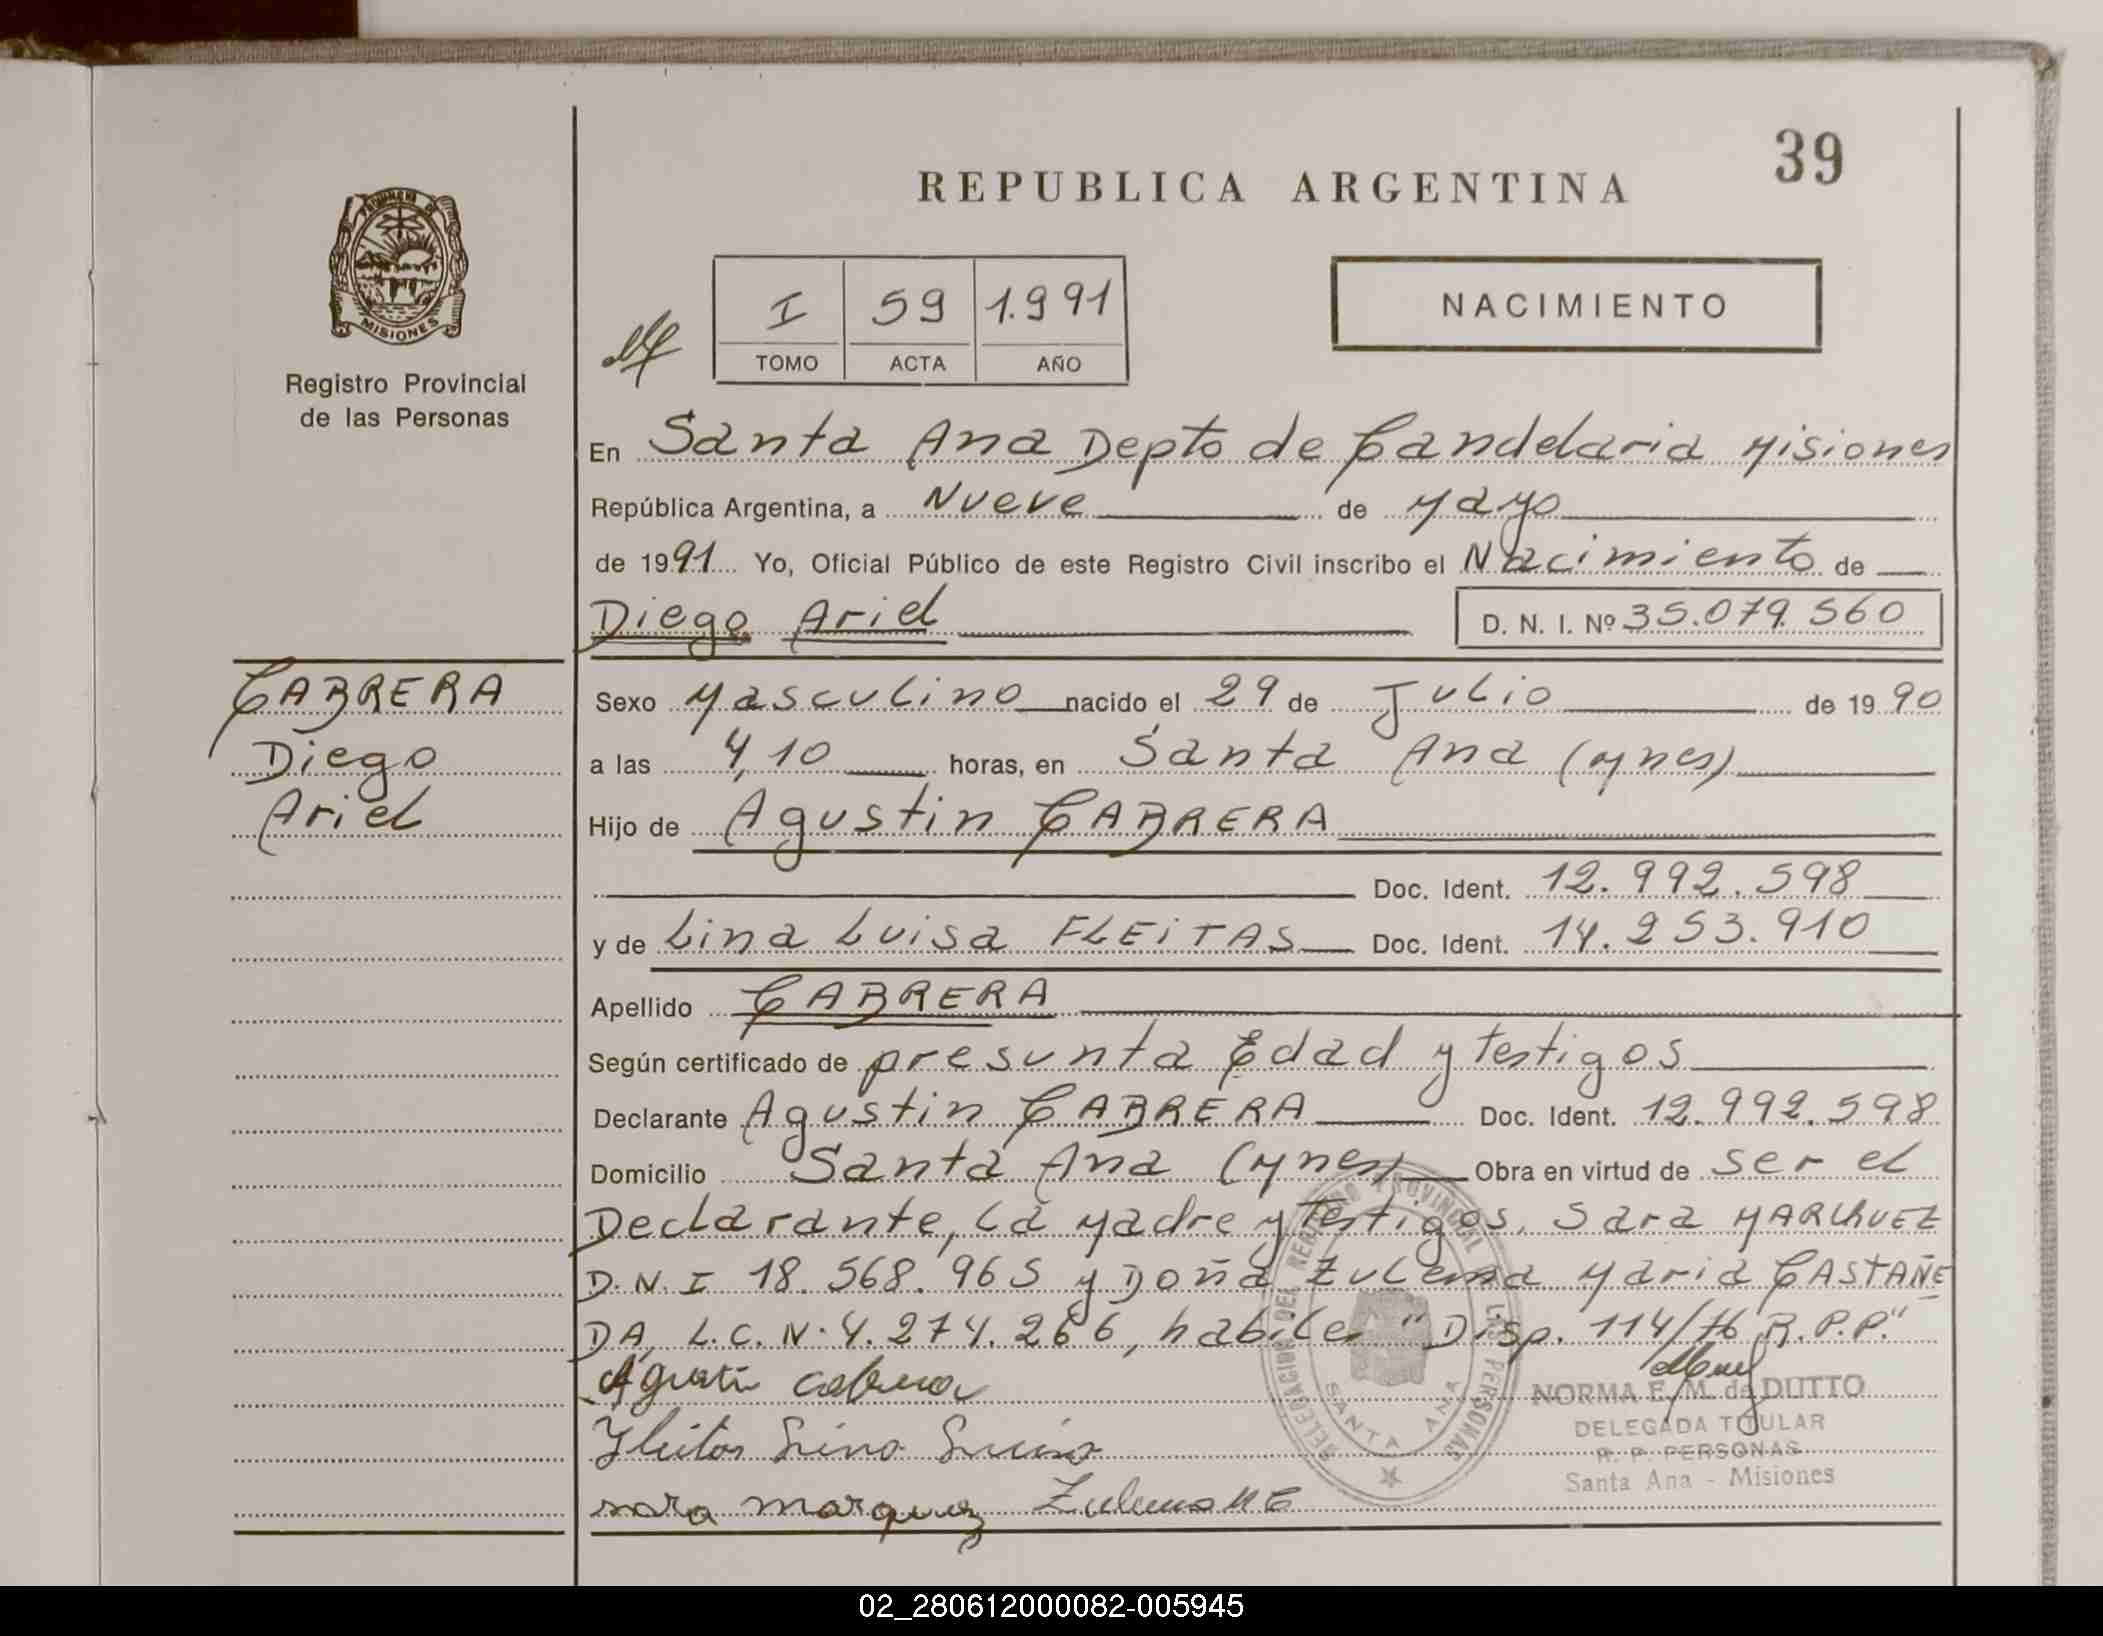 39
REPUBLICA ARGENTINA
PROVINCIA DE
MISIONES
Registro Provincial
de las Personas
I 59 1.991
TOMO ACTA AÑO
NACIMIENTO
En Santa Ana Depto de Candelaria Misiones
República Argentina, a Nueve de Mayo
de 1991 Yo, Oficial Público de este Registro Civil inscribo el Nacimiento de
Diego Ariel D. N. I. Nº 35.079.560
CABRERA
Diego
Ariel
Sexo Masculino nacido el 29 de Julio de 1990
a las 4,10 horas, en Santa Ana (Mnes)
Hijo de Agustin CABRERA
Doc. Ident. 12.992.598
y de Lina Luisa FLEITAS Doc. Ident. 14.253.910
Apellido CABRERA
Según certificado de presunta Edad y testigos
Declarante Agustin CABRERA Doc. Ident. 12.992.598
Domicilio Santa Ana (Mnes) Obra en virtud de ser el
Declarante, la Madre y Testigos, Sara MARQUEZ
D.N.I 18.568.965 y Doña Zulema Maria CASTAÑE
DA, L.C.N. 4.274.266, habiles "Disp. 114/76 R.P.P."
Agustin Cabrera
NORMA E. M. de DUTTO
DELEGADA TITULAR
R. P. PERSONAS
Santa Ana - Misiones
DELEGACION DEL REGISTRO PROVINCIAL DE LAS PERSONAS
SANTA ANA
Fleitas Lina Luisa
sara marquez Zulema M C
02_280612000082-005945